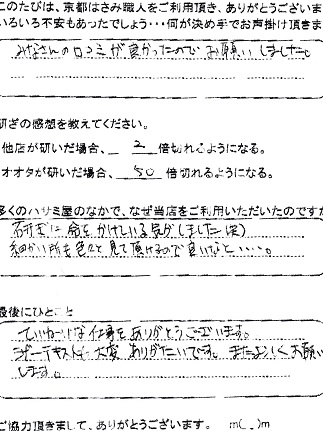 このたびは、京都はさみ職人をご利用頂き、ありがとうございま
いろいろ不安もあったでしょう・・・何が決め手でお声掛け頂きま
みなさんの口コミが良かったので お願いしました。
研ぎの感想を教えてください。
他店が研いだ場合、 2 倍切れるようになる。
オオタが研いだ場合、 50 倍切れるようになる。
多くのハサミ屋のなかで、なぜ当店をご利用いただいたのですか
研ぎに命をかけている気がしました(笑)
細かい所も色々と見て頂けるので良いなと・・・・。
最後にひとこと
ていねいな仕事をありがとうございます。
大変 ありがたいです。またよろしくお願い
します。
ご協力頂きまして、ありがとうございます。 m(_ _)m